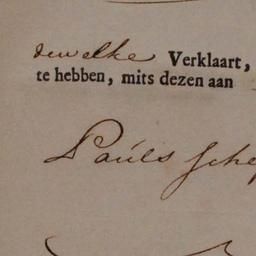 dewelke Verklaart,
te hebben, mits dezen aan
Pauls Sche